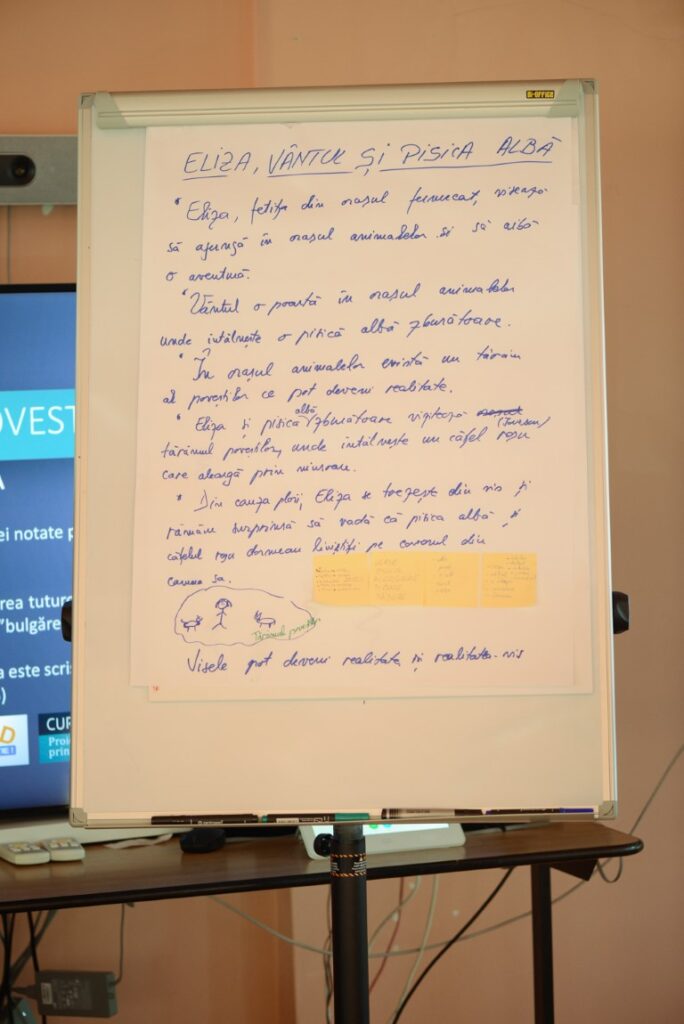 BI-OFFICE
ELIZA, VÂNTUL ȘI PISICA ALBĂ
* Eliza, fetița din orașul fermecat, visează
să ajungă în orașul animalelor și să aibă
o aventură.
* Vântul o poartă în orașul animalelor
unde întâlnește o pisică albă zburătoare.
* În orașul animalelor există un tărâm
al poveștilor ce pot deveni realitate.
* Eliza și pisica albă zburătoare vizitează
tărâmul poveștilor, unde întâlnește un cățel roșu
care aleargă prin
* Din cauza ploii, Eliza se trezește din vis și
rămâne surprinsă să vadă că pisica albă și
cățelul roșu dormeau liniștiți pe covorul din
camera sa.
Tărâmul poveștilor
Visele pot deveni realitate și realitatea vis
OVEST
A
ei notate p
rea tutur
"bulgăre
a este scris
)
D
CUR
Proie
prin